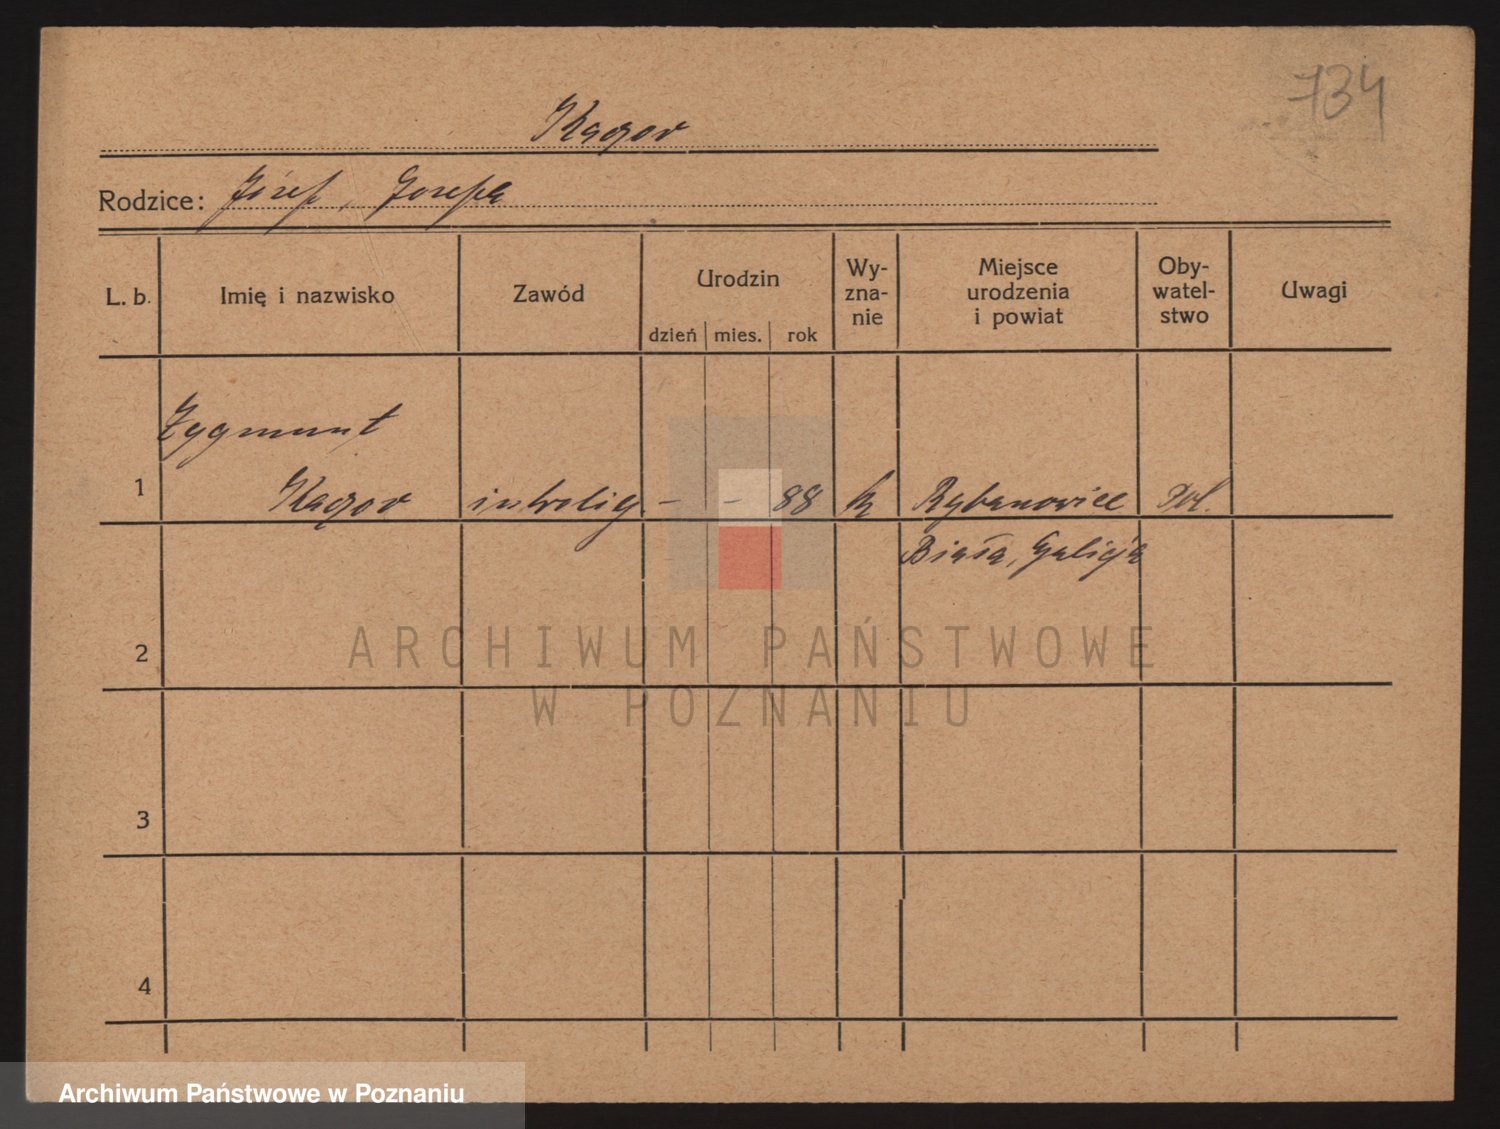 734
Kaczor
Rodzice: Józef, Josepha
L. b. Imię i nazwisko Zawód Urodzin dzień mies. rok Wy-zna-nie Miejsce urodzenia i powiat Oby-watel-stwo Uwagi
Zygmunt
1 Kaczor introlig. - - 88 k Rybarzowice Pol.
Biała, Galicja
2
3
4
ARCHIWUM PAŃSTWOWE
W POZNANIU
Archiwum Państwowe w Poznaniu